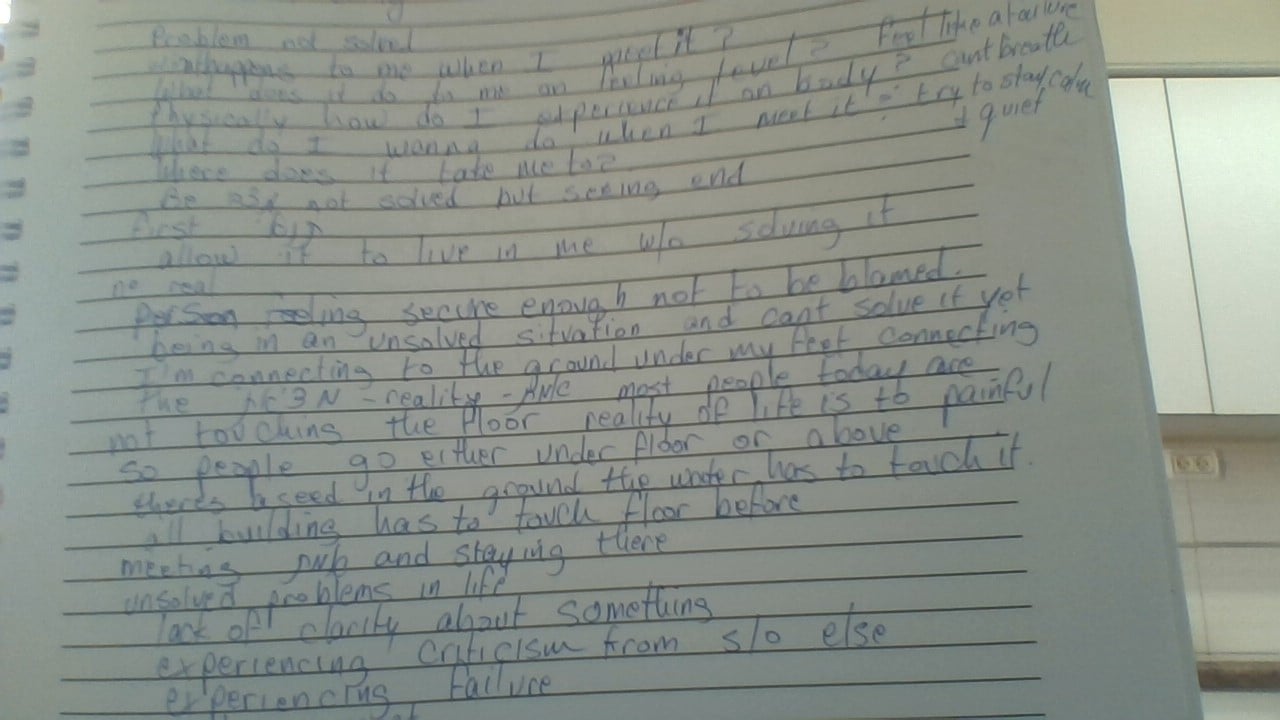 Problem not solved
to me when I meet it?
What does it do to me on feeling level? Feel like a failure
Physically how do I experience it on body? cant breath
What do I wanna do when I meet it - try to stay calm
& quiet
Where does it take me to?
Be not solved but seeing end
first
allow it to live in me w/o solving it
no real
person feeling secure enough not to be blamed.
being in an unsolved situation and cant solve it yet
I'm connecting to the ground under my feet connecting
the - reality - most people today are
not touching the floor reality of life is to painful
so people go either under floor or above
theres a seed in the ground the water has to touch it.
all building has to touch floor before
meeting and staying there
unsolved problems in life
lack of clarity about something
experiencing criticism from s/o else
experiencing failure